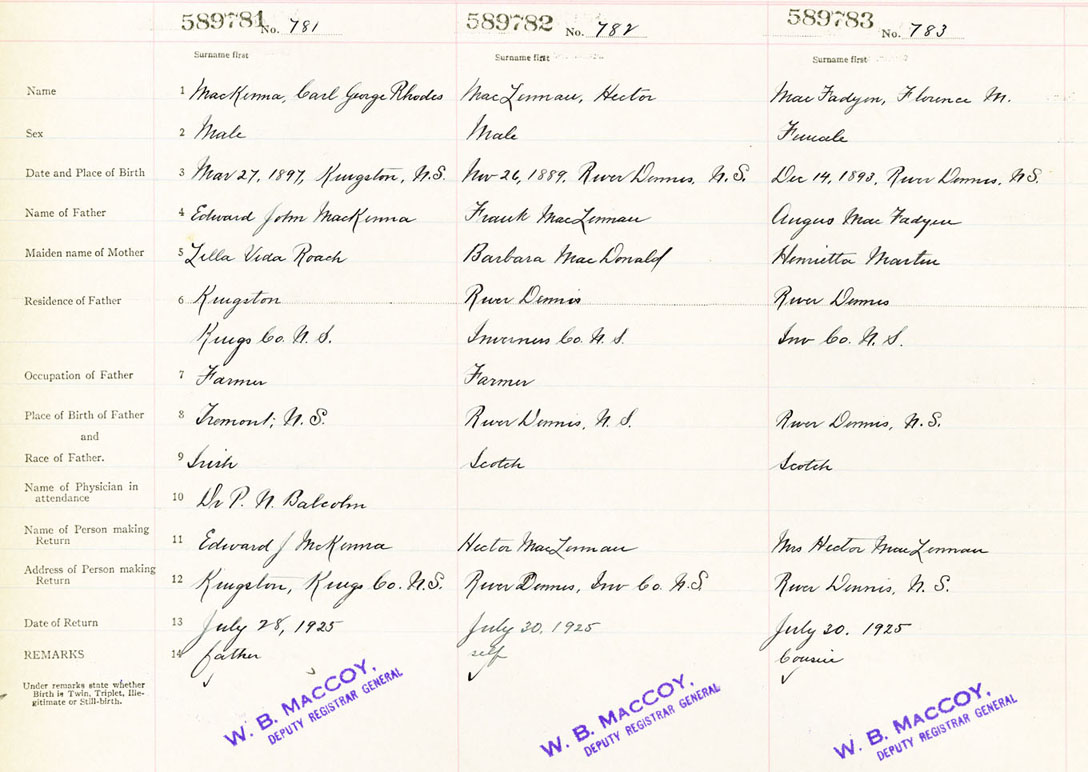 589781 No. 781 589782 No. 782 589783 No. 783
Surname first Surname first Surname first
Name 1 MacKenna, Carl George Rhodes MacLennan, Hector MacFadyen, Florence M.
Sex 2 Male Male Female
Date and Place of Birth 3 Mar 27, 1897, Kingston, N.S. Nov 26, 1889, River Dennis, N.S. Dec 14, 1893, River Dennis, N.S.
Name of Father 4 Edward John MacKenna Frank MacLennan Angus MacFadyen
Maiden name of Mother 5 Vida Roach Barbara MacDonald Henrietta Martin
Residence of Father 6 Kingston River Dennis River Dennis
Kings Co. N.S. Inverness Co. N.S. Inv Co. N.S.
Occupation of Father 7 Farmer Farmer
Place of Birth of Father 8 Tremont, N.S. River Dennis, N.S. River Dennis, N.S.
and
Race of Father. 9 Irish Scotch Scotch
Name of Physician in
attendance 10 Dr P. N. Balcolm
Name of Person making
Return 11 Edward J McKenna Hector MacLennan Mrs Hector MacLennan
Address of Person making
Return 12 Kingston, Kings Co. N.S. River Dennis, Inv Co. N.S. River Dennis, N.S.
Date of Return 13 July 28, 1925 July 30, 1925 July 30, 1925
REMARKS 14 father self Cousin
Under remarks state whether
Birth is Twin, Triplet, Ille-
gitimate or Still-birth.
W. B. MACCOY, W. B. MACCOY, W. B. MACCOY,
DEPUTY REGISTRAR GENERAL DEPUTY REGISTRAR GENERAL DEPUTY REGISTRAR GENERAL